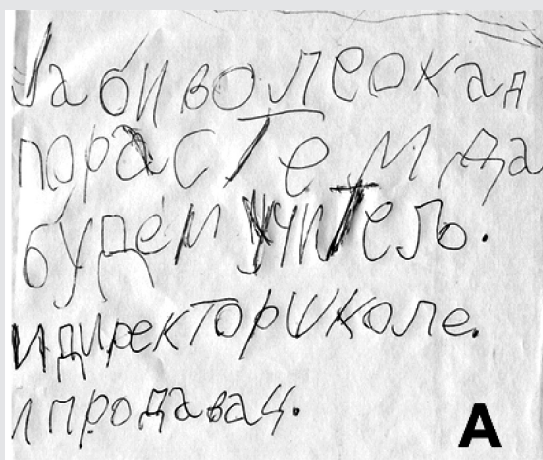 Ја би волео кад
порастем да
будем учитељ.
и директор школе.
и продавац.
A